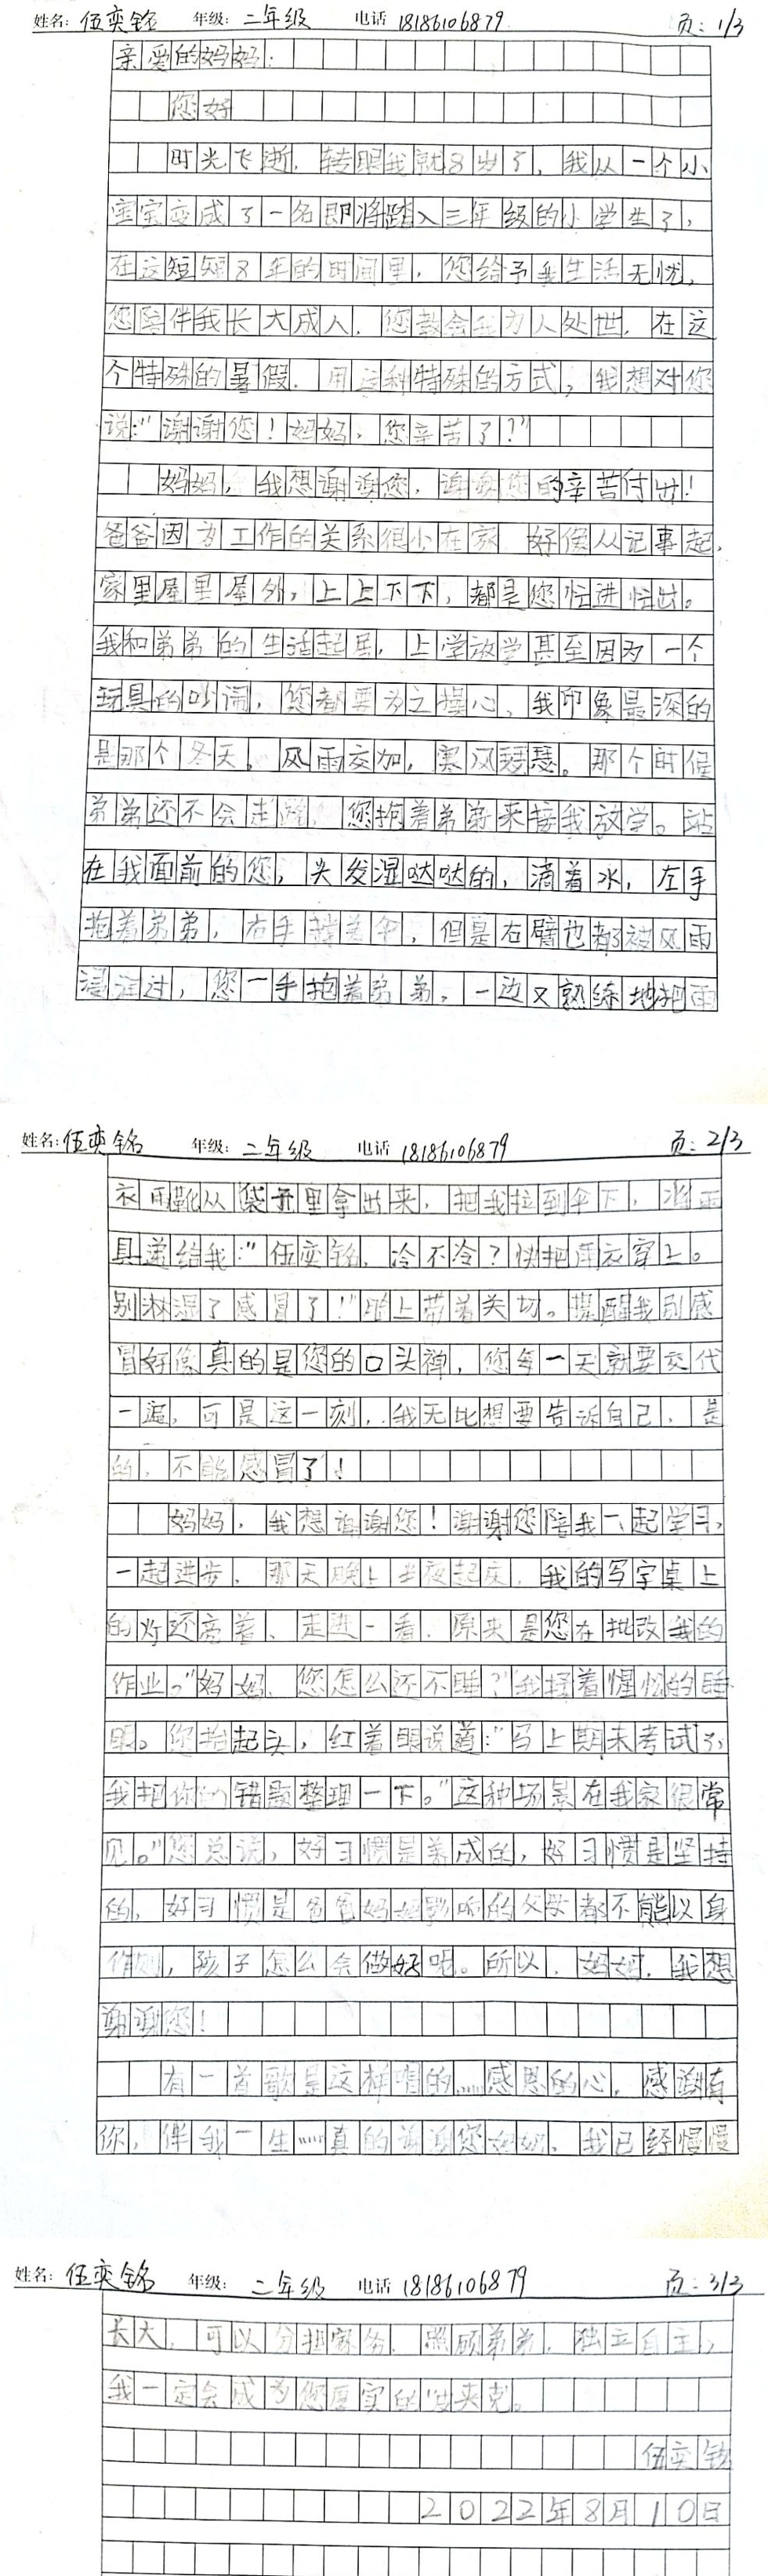 姓名：伍奕铭 年级：二年级 电话 18186106879 页：1/3
亲爱的妈妈：
您好
时光飞逝，转眼我就8岁了，我从一个小
宝宝变成了一名即将踏入三年级的小学生了，
在这短短8年的时间里，您给予我生活无忧，
您陪伴我长大成人，您教会我为人处世，在这
个特殊的暑假，用这种特殊的方式，我想对您
说：“谢谢您！妈妈，您辛苦了？”
妈妈，我想谢谢您，谢谢您的辛苦付出！
爸爸因为工作的关系很少在家 好像从记事起，
家里屋里屋外，上上下下，都是您忙进忙出。
我和弟弟的生活起居，上学放学甚至因为一个
玩具的吵闹，您都要为之操心，我印象最深的
是那个冬天，风雨交加，寒风瑟瑟。那个时候
弟弟还不会走路，您抱着弟弟来接我放学。站
在我面前的您，头发湿哒哒的，滴着水，左手
抱着弟弟，右手撑着伞，但是右臂也都被风雨
浸润过，您一手抱着弟弟，一边又熟练地把雨
姓名：伍奕铭 年级：二年级 电话 18186106879 页：2/3
衣雨靴从袋子里拿出来，把我拉到伞下，将雨
具递给我：“伍奕铭，冷不冷？快把雨衣穿上。
别淋湿了感冒了！”脸上带着关切。提醒我别感
冒好像真的是您的口头禅，您每一天就要交代
一遍，可是这一刻，我无比想要告诉自己，是
的，不能感冒了！
妈妈，我想谢谢您！谢谢您陪我一起学习，
一起进步，那天晚上半夜起床，我的写字桌上
的灯还亮着、走进一看，原来是您在批改我的
作业。“妈妈，您怎么还不睡？”我揉着惺忪的睡
眼。您抬起头，红着眼说道：“马上期末考试了，
我把你的错题整理一下。”这种场景在我家很常
见。“您总说，好习惯是养成的，好习惯是坚持
的，好习惯是爸爸妈妈影响的父母都不能以身
作则，孩子怎么会做好呢。所以，妈妈，我想
谢谢您！
有一首歌是这样唱的……感恩的心，感谢有
你，伴我一生……真的谢谢您妈妈，我已经慢慢
姓名：伍奕铭 年级：二年级 电话 18186106879 页：3/3
长大，可以分担家务，照顾弟弟，独立自主，
我一定会成为您厚实的“皮夹克。
伍奕铭
2022年8月10日